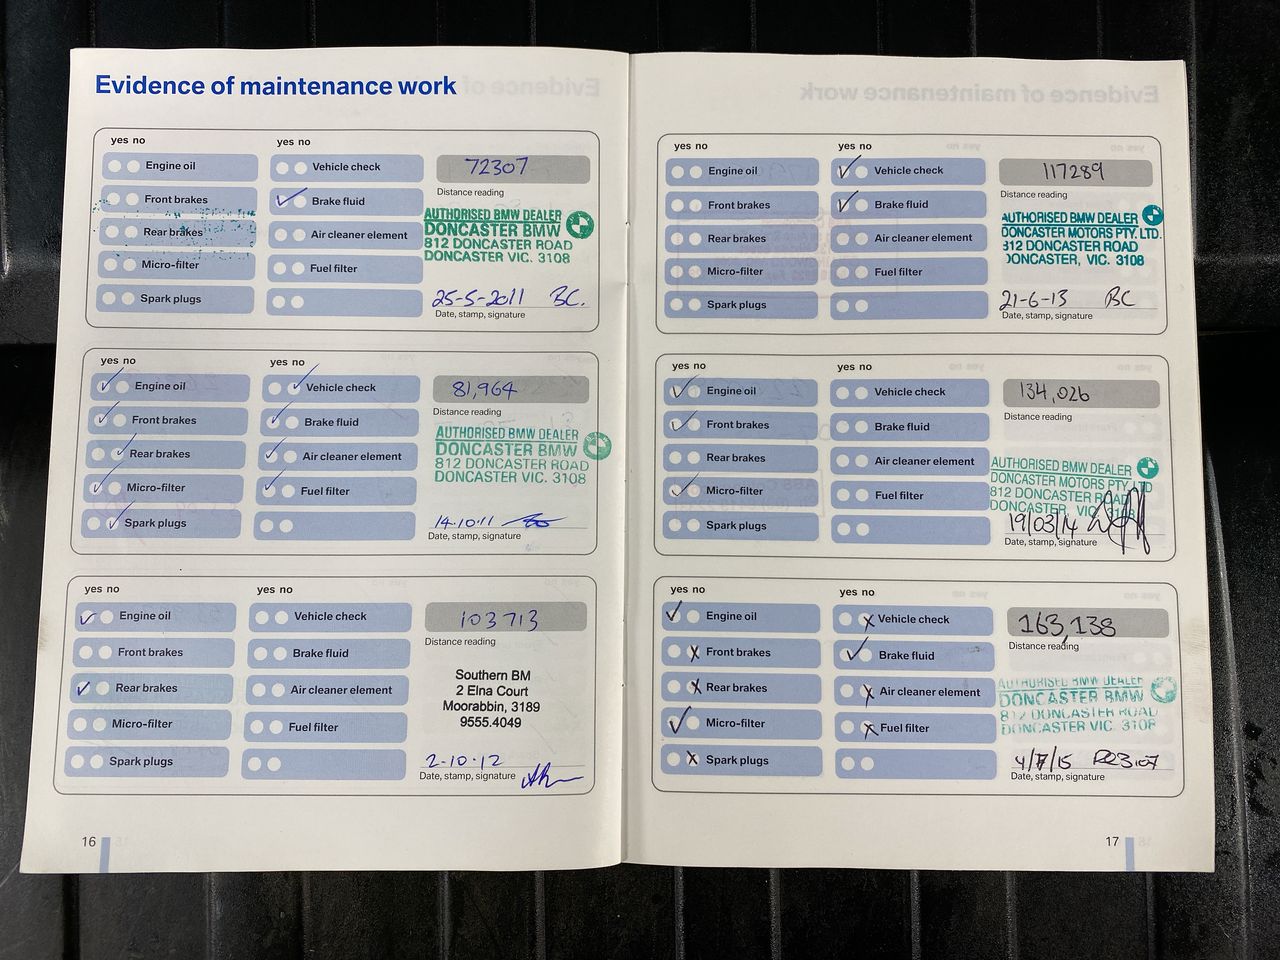 Evidence of maintenance work
yes no
yes no
Engine oil
Vehicle check
72307
Distance reading
Front brakes
Brake fluid
Rear brakes
Air cleaner element
Micro-filter
Fuel filter
Spark plugs
AUTHORISED BMW DEALER
DONCASTER BMW
812 DONCASTER ROAD
DONCASTER VIC. 3108
25-5-2011 BC.
Date, stamp, signature
yes no
yes no
Engine oil
Vehicle check
81,964
Distance reading
Front brakes
Brake fluid
Rear brakes
Air cleaner element
Micro-filter
Fuel filter
Spark plugs
AUTHORISED BMW DEALER
DONCASTER BMW
812 DONCASTER ROAD
DONCASTER VIC. 3108
14.10.11
Date, stamp, signature
yes no
yes no
Engine oil
Vehicle check
103713
Distance reading
Front brakes
Brake fluid
Rear brakes
Air cleaner element
Micro-filter
Fuel filter
Spark plugs
Southern BM
2 Elna Court
Moorabbin, 3189
9555.4049
2-10-12
Date, stamp, signature
16
yes no
yes no
Engine oil
Vehicle check
117289
Distance reading
Front brakes
Brake fluid
Rear brakes
Air cleaner element
Micro-filter
Fuel filter
Spark plugs
AUTHORISED BMW DEALER
DONCASTER MOTORS PTY. LTD.
812 DONCASTER ROAD
DONCASTER, VIC. 3108
21-6-13 BC
Date, stamp, signature
yes no
yes no
Engine oil
Vehicle check
134,026
Distance reading
Front brakes
Brake fluid
Rear brakes
Air cleaner element
Micro-filter
Fuel filter
Spark plugs
AUTHORISED BMW DEALER
DONCASTER MOTORS PTY LTD
812 DONCASTER ROAD
DONCASTER, VIC 3108
19/03/14
Date, stamp, signature
yes no
yes no
Engine oil
Vehicle check
163,138
Distance reading
Front brakes
Brake fluid
Rear brakes
Air cleaner element
Micro-filter
Fuel filter
Spark plugs
AUTHORISED BMW DEALER
DONCASTER BMW
812 DONCASTER ROAD
DONCASTER VIC. 3108
4/7/15
Date, stamp, signature
17